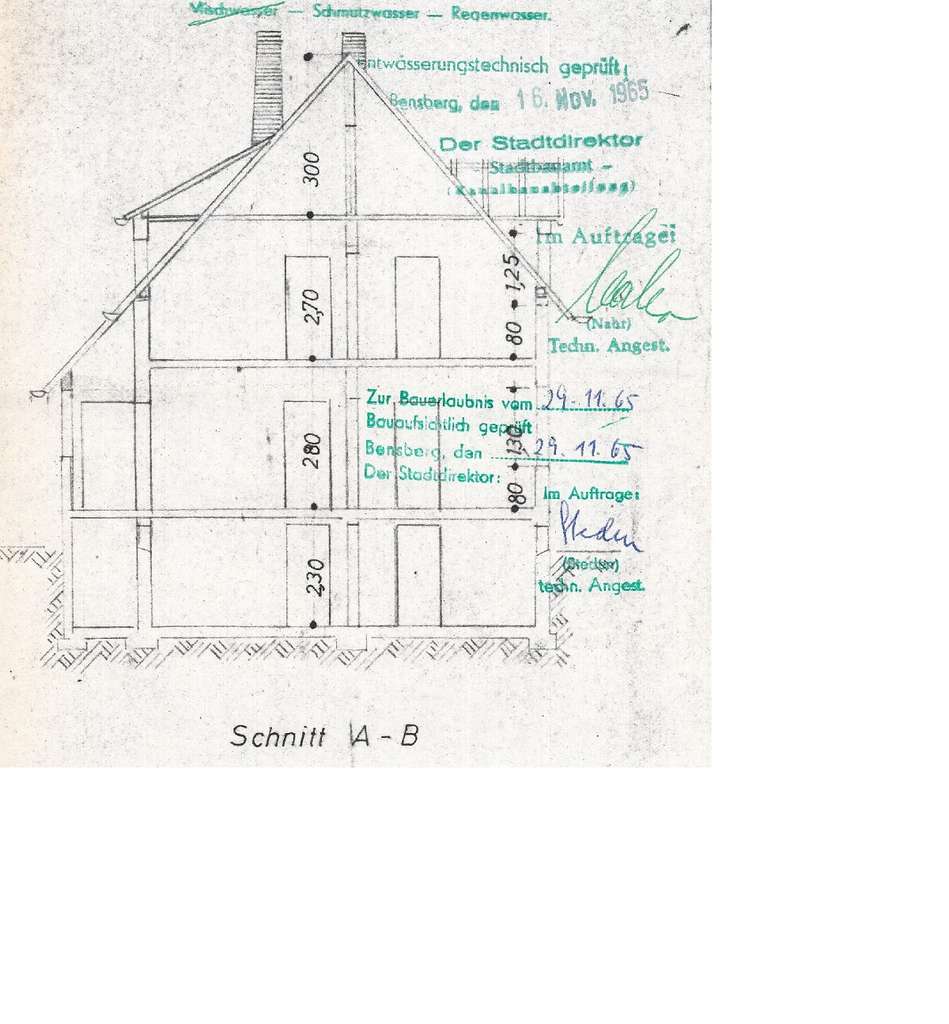 Mischwasser — Schmutzwasser — Regenwasser.
Entwässerungstechnisch geprüft!
Bensberg, den 16. Nov. 1965
Der Stadtdirektor
Stadtbauamt —
(Kanalbauabteilung)
Im Auftrage:
(Nahr)
Techn. Angest.
300
2,70
280
2,30
1,25
80
130
80
Zur Bauerlaubnis vom 29.11.65
Bauaufsichtlich geprüft
Bensberg, den 29. 11. 65
Der Stadtdirektor:
Im Auftrage:
techn. Angest.
Schnitt A - B